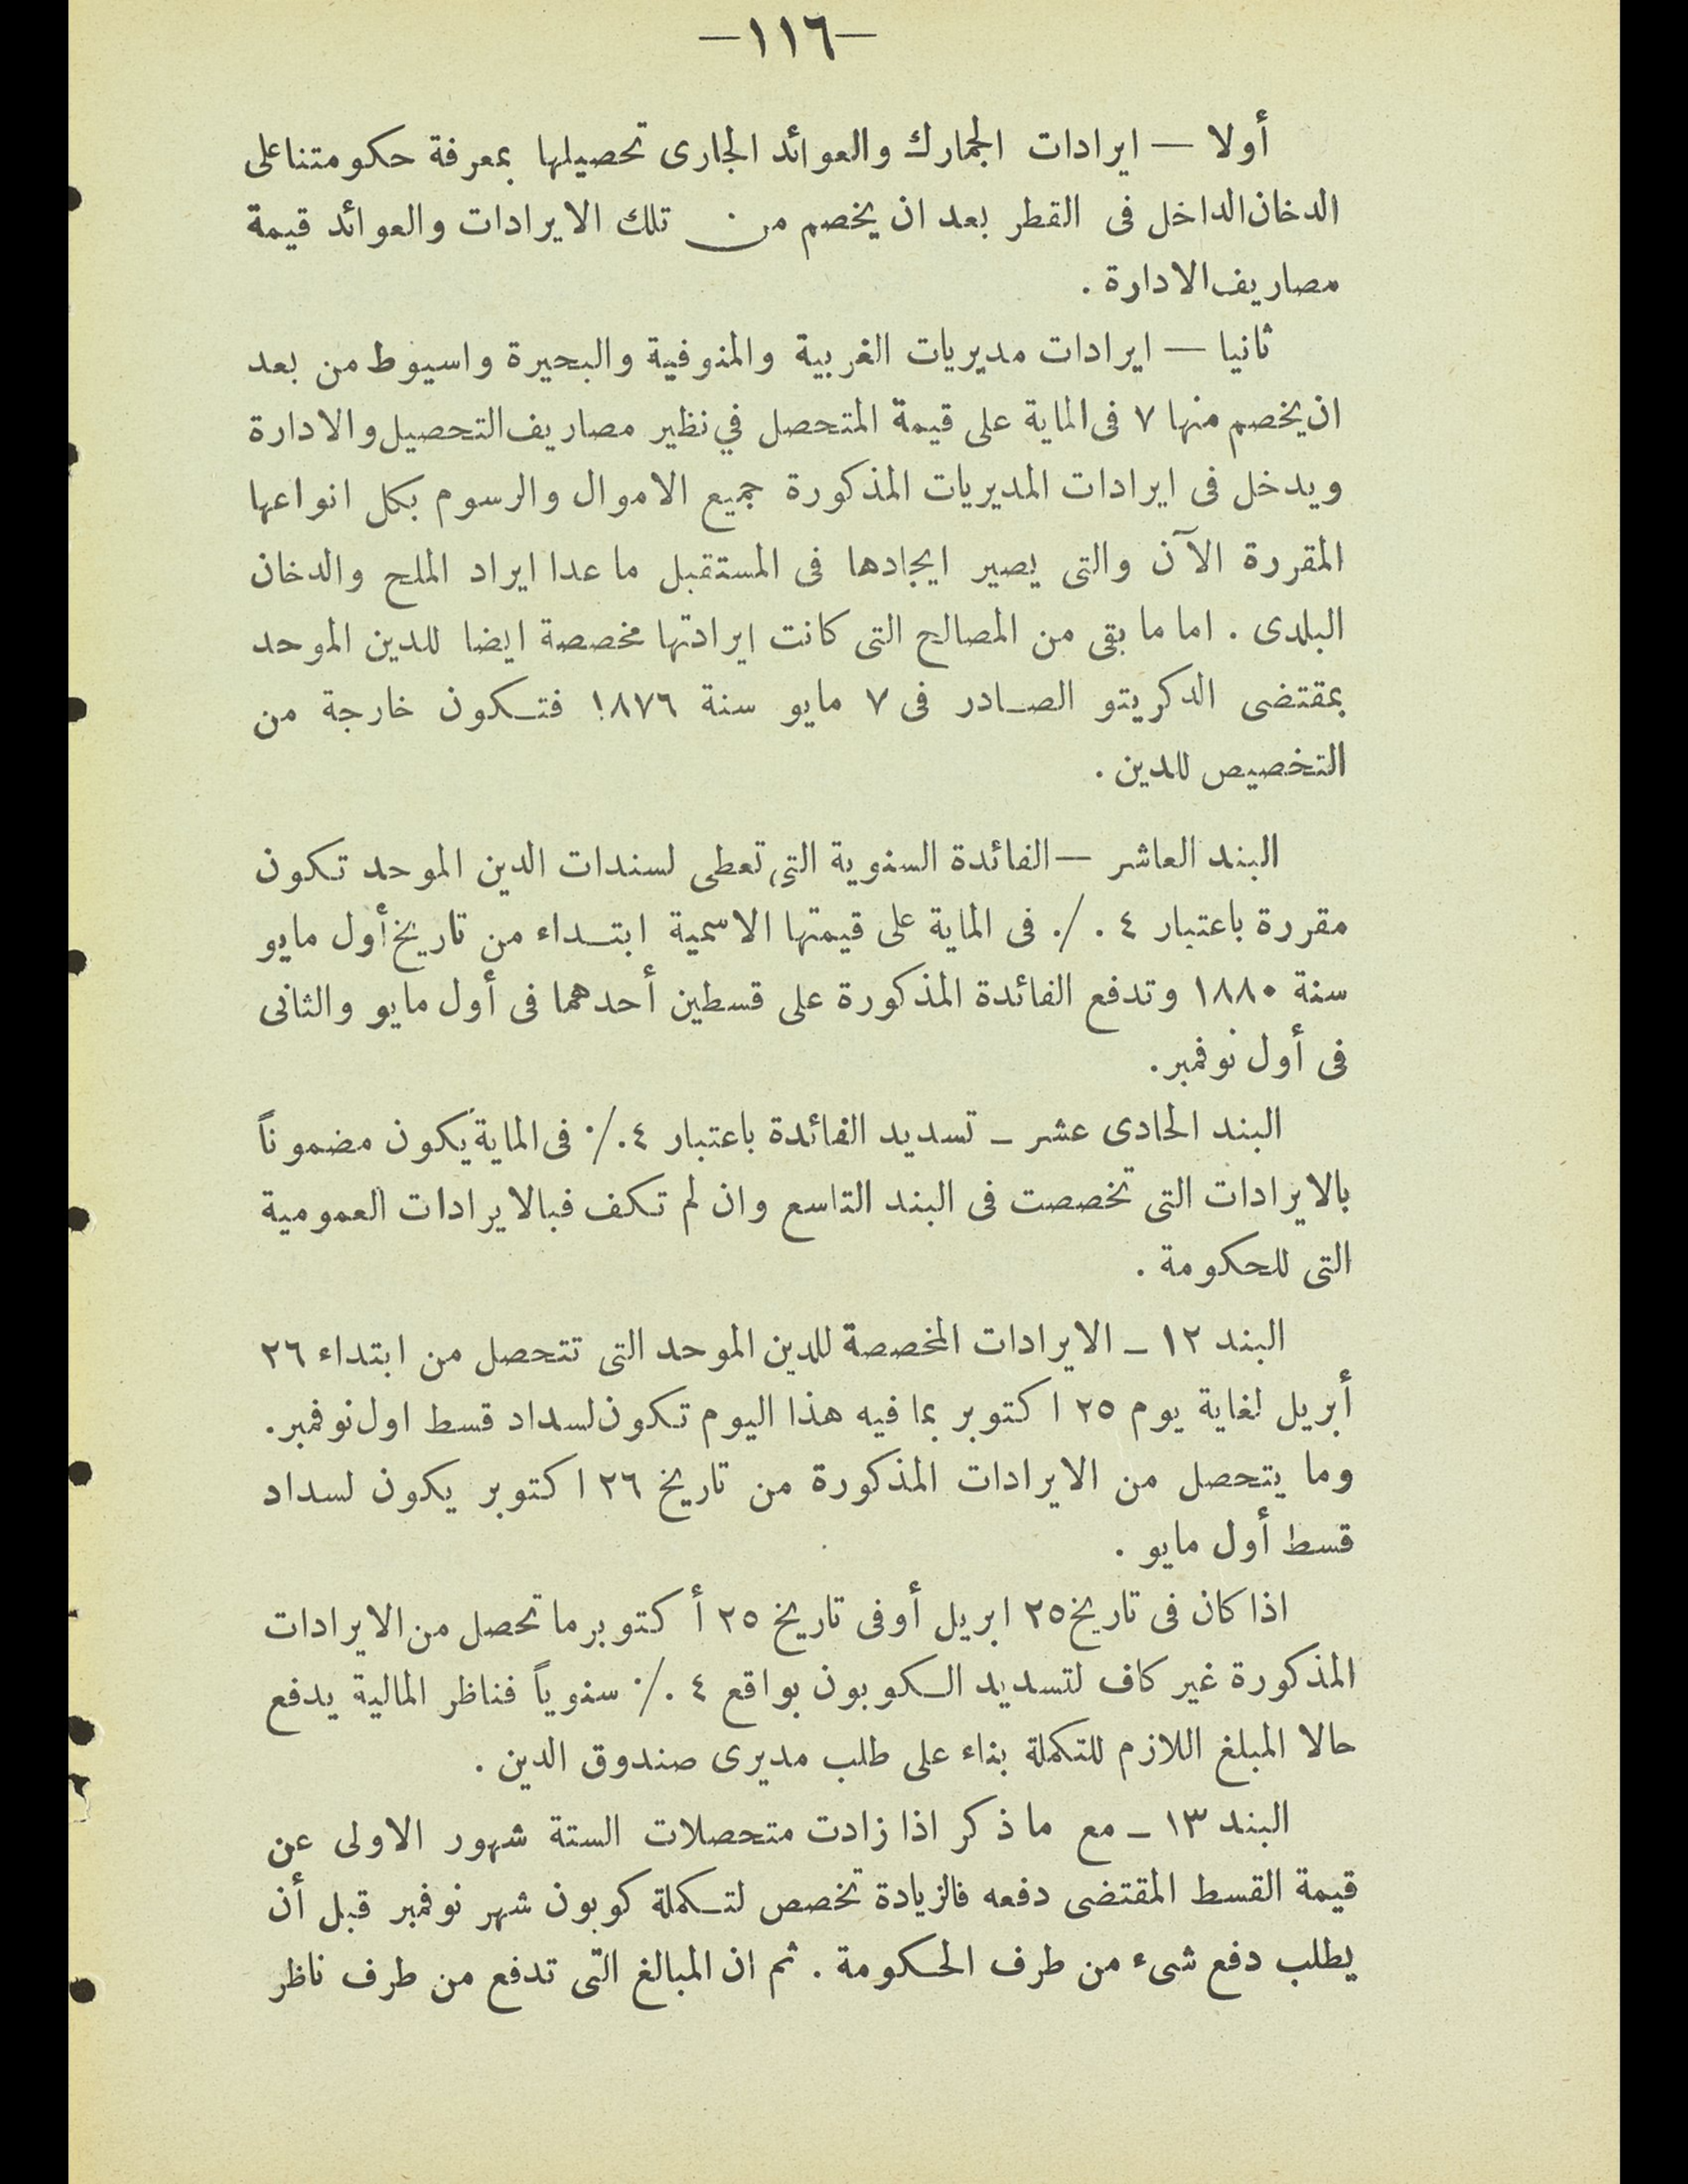 —١١٦—
أولا — ايرادات الجمارك والعوائد الجارى تحصيلها بمعرفة حكومتنا على
الدخان الداخل فى القطر بعد ان يخصم من تلك الايرادات والعوائد قيمة
مصاريف الادارة .
ثانيا — ايرادات مديريات الغربية والمنوفية والبحيرة واسيوط من بعد
ان يخصم منها ٧ فى الماية على قيمة المتحصل في نظير مصاريف التحصيل والادارة
ويدخل فى ايرادات المديريات المذكورة جميع الاموال والرسوم بكل انواعها
المقررة الآن والتى يصير ايجادها فى المستقبل ما عدا ايراد الملح والدخان
البلدى . اما ما بقى من المصالح التى كانت ايرادتها مخصصة ايضا للدين الموحد
بمقتضى الدكريتو الصادر فى ٧ مايو سنة ١٨٧٦ فتكون خارجة من
التخصيص للدين .
البند العاشر — الفائدة السنوية التى تعطى لسندات الدين الموحد تكون
مقررة باعتبار ٤ ./. فى الماية على قيمتها الاسمية ابتداء من تاريخ أول مايو
سنة ١٨٨٠ وتدفع الفائدة المذكورة على قسطين أحدهما فى أول مايو والثانى
فى أول نوفمبر.
البند الحادى عشر – تسديد الفائدة باعتبار ٤ ./· فى الماية يكون مضموناً
بالايرادات التى تخصصت فى البند التاسع وان لم تكف فبالايرادات العمومية
التى للحكومة .
البند ١٢ – الايرادات المخصصة للدين الموحد التى تتحصل من ابتداء ٢٦
أبريل لغاية يوم ٢٥ اكتوبر بما فيه هذا اليوم تكون لسداد قسط اول نوفمبر.
وما يتحصل من الايرادات المذكورة من تاريخ ٢٦ اكتوبر يكون لسداد
قسط أول مايو .
اذا كان فى تاريخ ٢٥ ابريل أو فى تاريخ ٢٥ أكتوبر ما تحصل من الايرادات
المذكورة غير كاف لتسديد الكوبون بواقع ٤ ./· سنوياً فناظر المالية يدفع
حالا المبلغ اللازم للتكملة بناء على طلب مديرى صندوق الدين .
البند ١٣ – مع ما ذكر اذا زادت متحصلات الستة شهور الاولى عن
قيمة القسط المقتضى دفعه فالزيادة تخصص لتكملة كوبون شهر نوفمبر قبل أن
يطلب دفع شىء من طرف الحكومة . ثم ان المبالغ التى تدفع من طرف ناظر